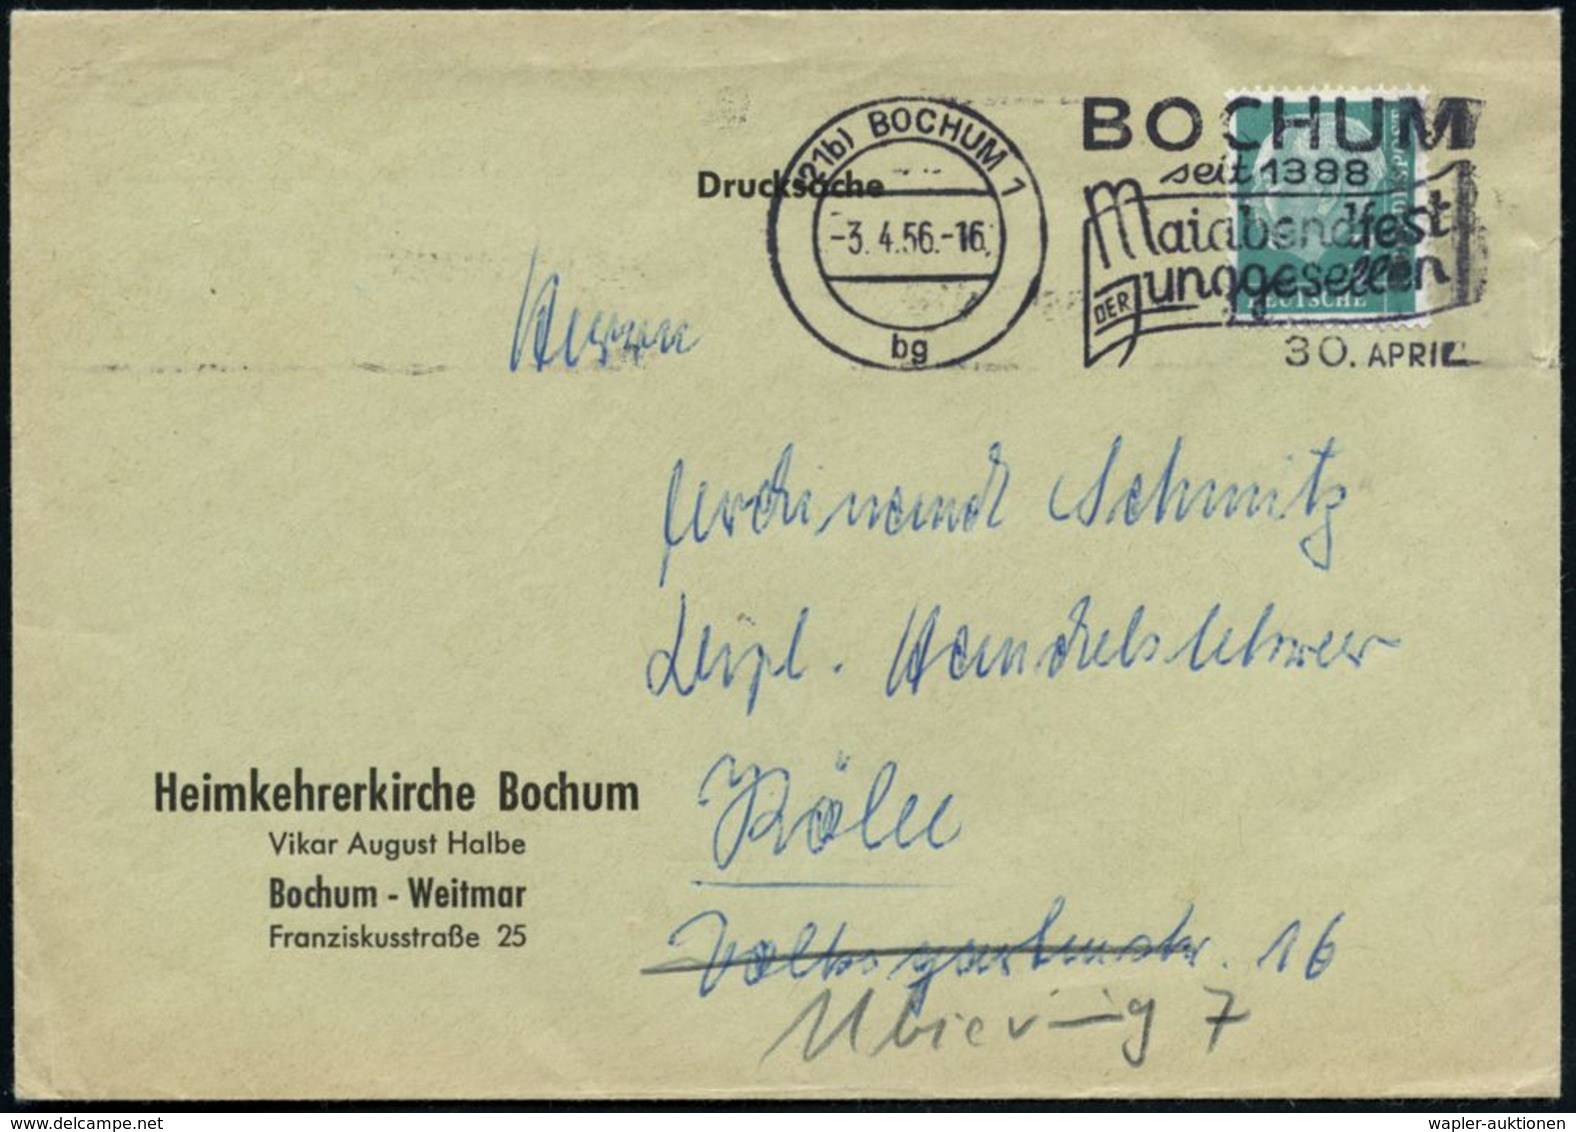 BOCHUM
seit 1388
Maiabendfest
DER Junggesellen
30. APRIL
(21b) BOCHUM 1
-3. 4. 56. -16
bg
DEUTSCHE
Drucksache
Herrn
Ferdinand Schmitz
Dipl. Handelslehrer
Köln
Volksgartenstr. 16
Ubierring 7
Heimkehrerkirche Bochum
Vikar August Halbe
Bochum - Weitmar
Franziskusstraße 25
wapler-auktionen